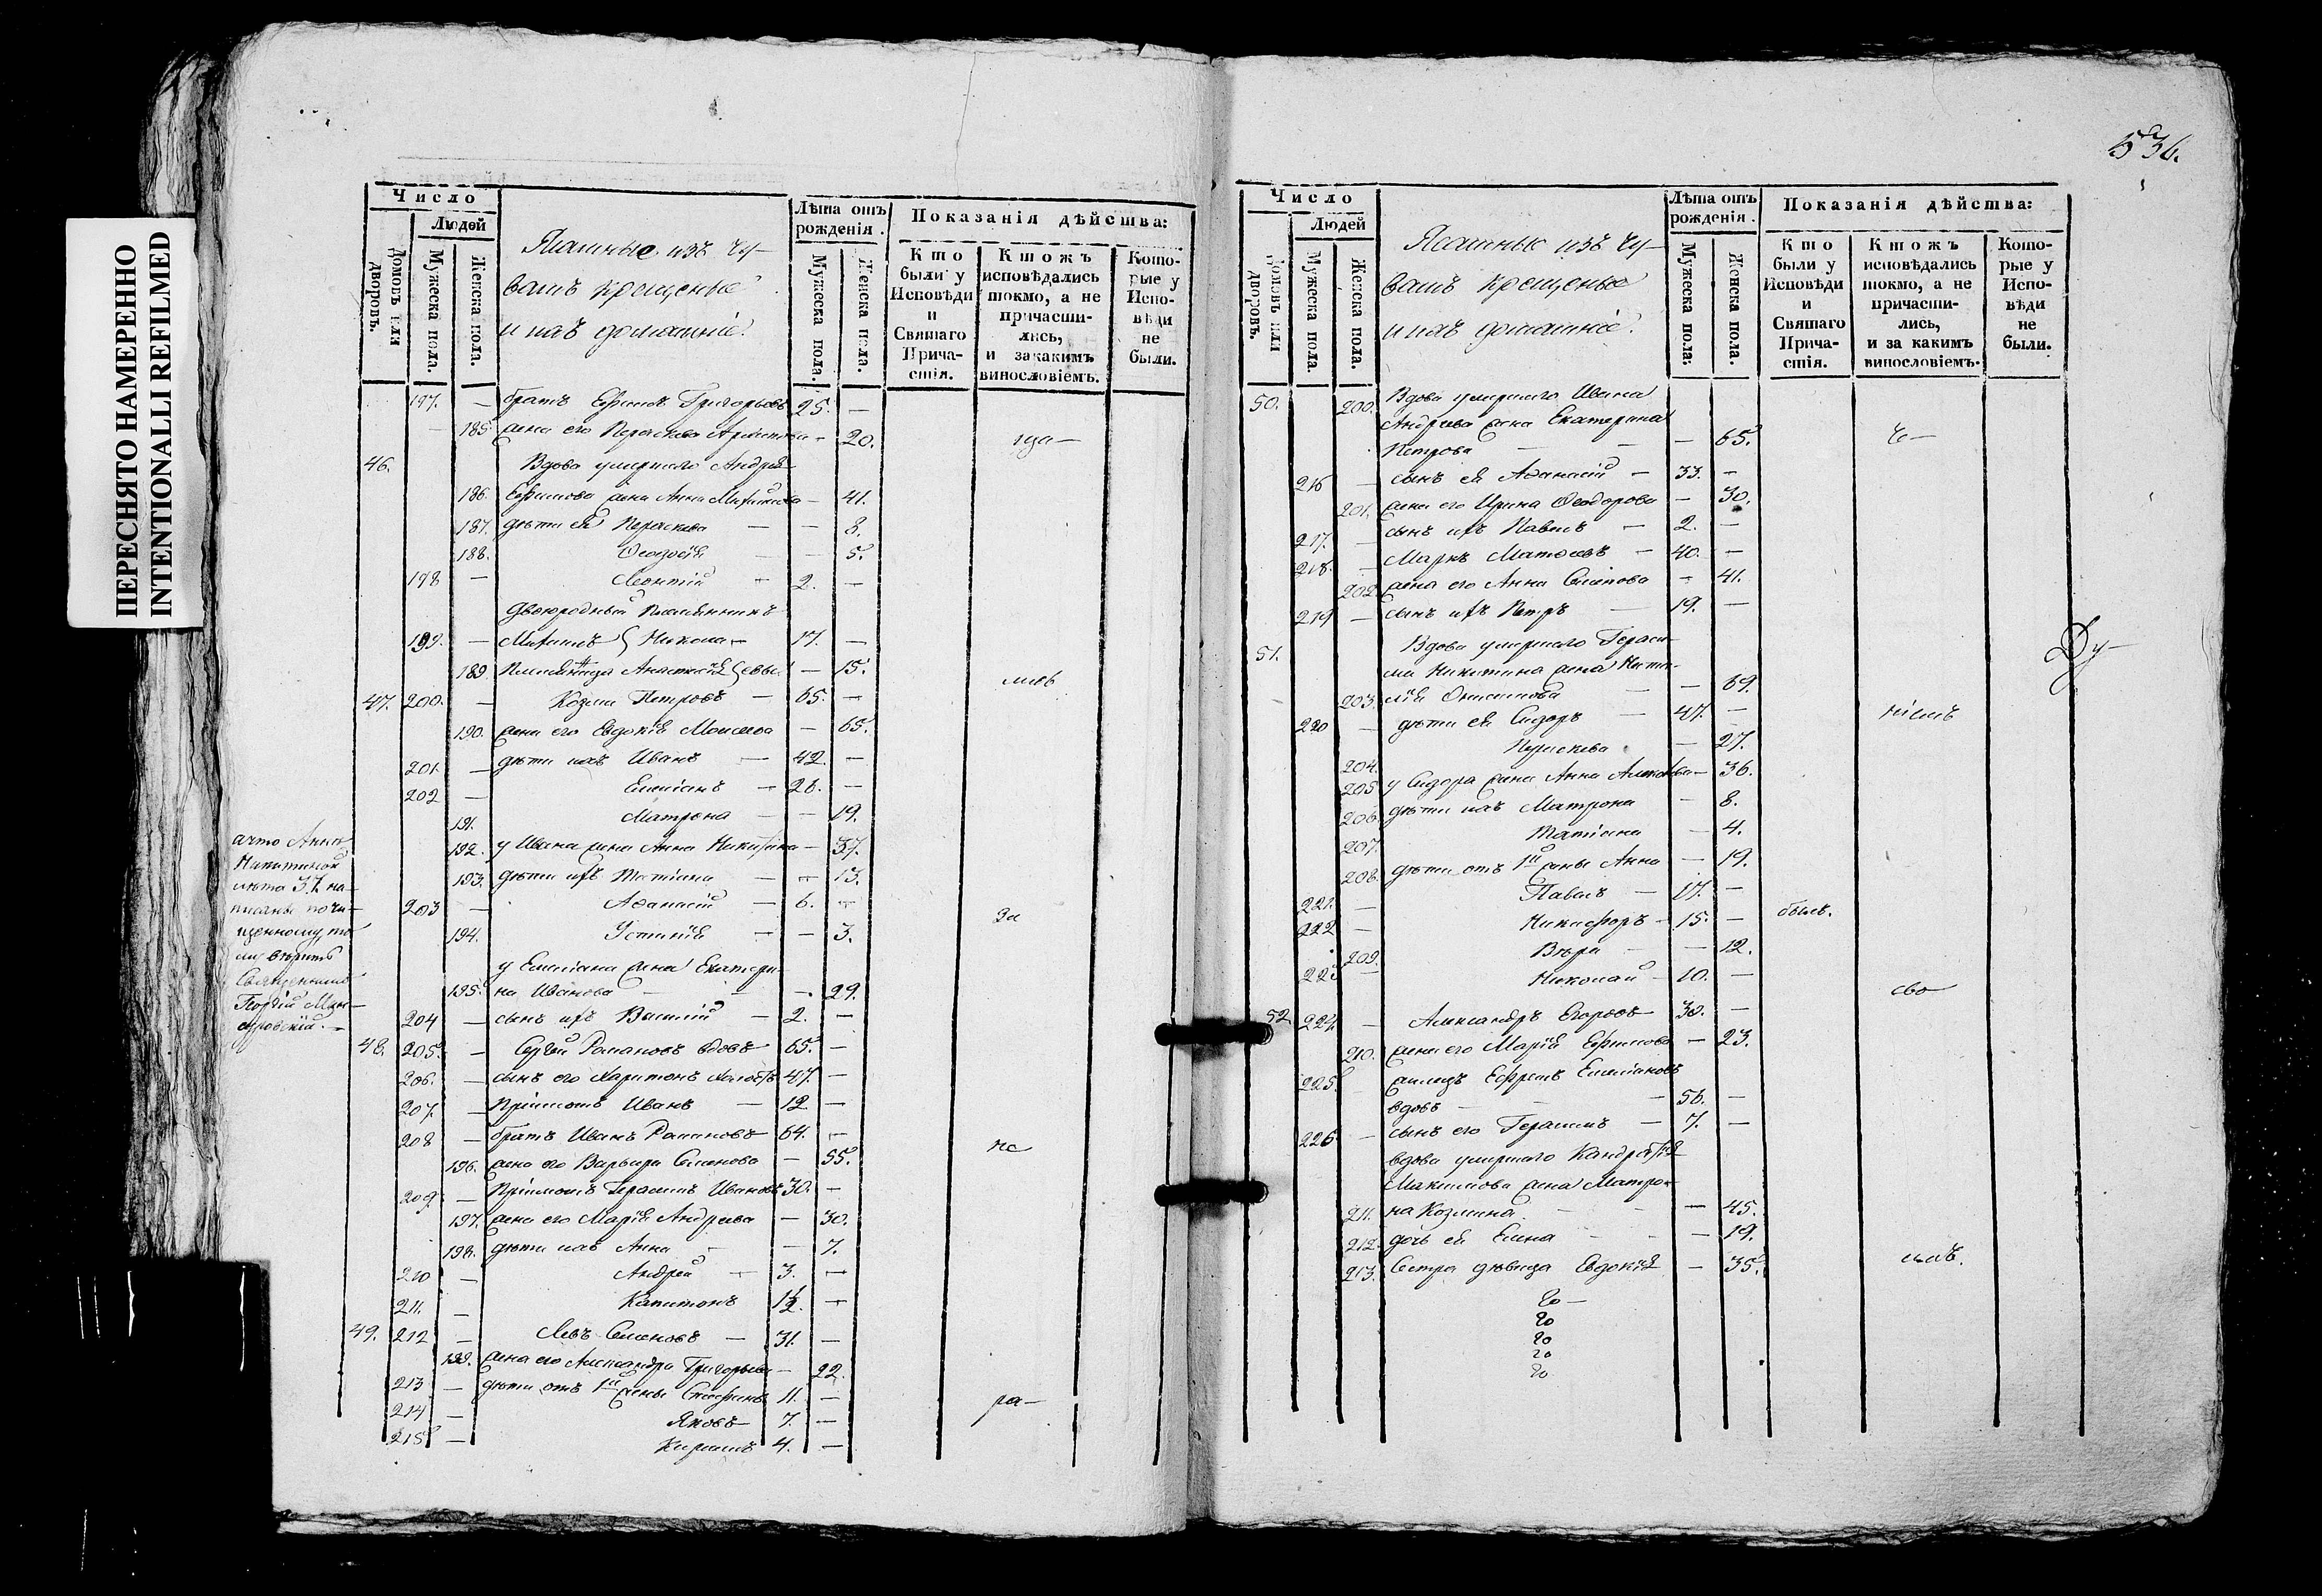 ПЕРЕСНЯТО НАМЕРЕННО
INTENTIONALLI REFILMED
Число
Людей
Домовъ или дворовъ.
Мужеска пола.
Женска пола.
Ясашные изъ чу-
вашъ крещеные
и ихъ домашніе.
Лѣта отъ рожденія.
Мужеска пола.
Женска пола.
Показанія дѣйства:
Кто были у Исповѣди и Святаго Прича-стія.
Ктожъ исповѣдались токмо, а не причасти-лись, и закакимъ винословіемъ.
Кото-рые у Испо-вѣди не были.
197. — братъ Ефимъ Григорьевъ 25. —
185. жена его Параскева - 20.
46. Вдова умершаго Андрея
186. Ефимова жена Анна - 41.
187. дѣти ея Параскева — — 8.
188. Ѳеодосія — 5.
198 — Леонтій - 2. —
двоюродный племянникъ
199. — Никола- 17. —
189. Племянница Анастасія - 15.
47. 200. — Козма Петровъ — 65. —
190. жена его Евдокія Моисеева — 65.
201. — дѣти ихъ Иванъ — 42. —
202 — Емеліанъ — 28. —
191. Матрона — — 19.
192. у Ивана жена Анна Никитина — 37.
193. дѣти ихъ Татіана — — 13.
203 — Аѳанасій — 6. —
194. Устинія — — 3.
у Емеліана жена Екатери-
195. на Иванова — — 29.
204 — сынъ ихъ Василій — 2. —
48. 205. — Сергей Романовъ вдовъ 65. —
206. — сынъ его Харитонъ холостъ 47. —
207. — Пріимышъ Иванъ — 12 —
208 — братъ Иванъ Романовъ 64. —
196. жена его Варвара Семенова — 55.
209. — Герасимъ Ивановъ 30. —
197. жена его Марія Андреева — 30.
198. дѣти ихъ Анна — — 7.
210 — Андрей — 3. —
211. — Капитонъ 1½. —
49. 212 — Левъ Семеновъ — 31. —
199. жена его Александра Григорьева — 22.
213 — дѣти отъ 1й жены 11. —
214 — Яковъ 7. —
215 — 4. —
ща—
за
не
ра—
ачто Аннѣ
Никитиной
лѣта 37. на-
писаны по чи-
щенному, то-
му вѣрить
Священникъ
536.
Число
Людей
Домовъ или дворовъ.
Мужеска пола.
Женска пола.
Ясашные изъ чу-
вашъ крещеные
и ихъ домашніе.
Лѣта отъ рожденія.
Мужеска пола.
Женска пола.
Показанія дѣйства:
Кто были у Исповѣди и Святаго Прича-стія.
Ктожъ исповѣдались токмо, а не причасти-лись, и за какимъ винословіемъ.
Кото-рые у Испо-вѣди не были.
50. 200. Вдова умершаго Ивана
Андреева жена Екатерина
Петрова — — 65.
216 — сынъ ея Аѳанасій — 33. —
201. жена его Ирина Ѳеодорова — 30.
217. — сынъ ихъ Павелъ — 2. —
218. — Маркъ — 40. —
202. жена его Анна — 41.
219 — сынъ ихъ Петръ — 19. —
51. Вдова умершаго Гераси-
ма Никитина жена Ната-
203. лія Онисимова — 69.
220 — дѣти ея Сидоръ — 47. —
204. Параскева — 27.
205 у Сидора жена Анна — 36.
206. дѣти ихъ Матрона — 8.
207. Татіана — 4.
208. дѣти отъ 1й жены Анна — 19.
221. — Павелъ — 17. —
222 — Никифоръ — 15. —
209. Вѣра — — 12.
223 — Николай — 10. —
52. 224. — Александръ Егоровъ 30. —
210. жена его Марія Ефимова — 23.
225. Ефремъ Емеліановъ
вдовъ — — 56. —
226 — сынъ его Герасимъ — 7. —
вдова умершаго Кандратія
Максимова жена Матро-
211. на Козмина — — 45.
212. дочь ея Елена — — 19.
213. Сестра дѣвица Евдокія — 35.
че—
ніемъ
былъ.
сво
имъ.
Ду—